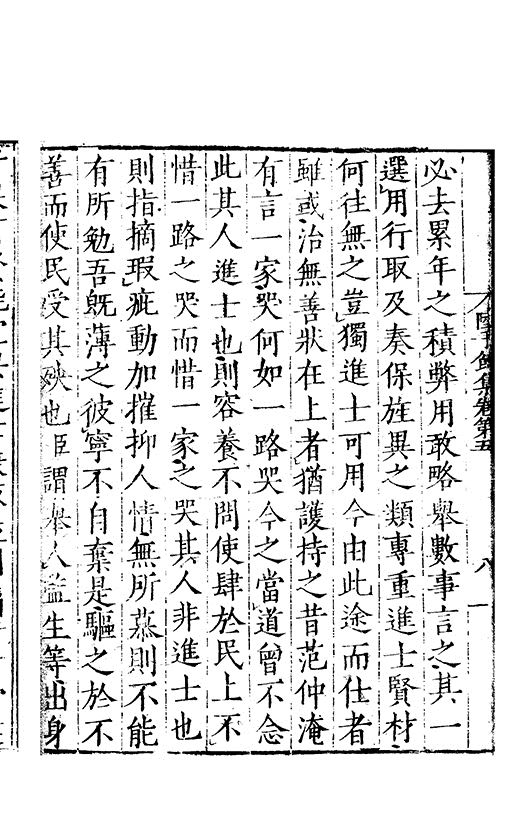 必去累年之積弊用敢略舉數事言之其一
選用行取及奏保旌異之類專重進士賢材
何往無之豈獨進士可用今由此途而仕者
雖或治無善狀在上者猶護持之昔范仲淹
有言一家哭何如一路哭今之當道曾不念
此其人進士也則容養不問使肆於民上不
惜一路之哭而惜一家之哭其人非進士也
則指摘瑕疵動加摧抑人情無所慕則不能
有所勉吾既薄之彼寧不自棄是驅之於不
善而使民受其殃也臣謂舉人監生等出身
集卷第五
八